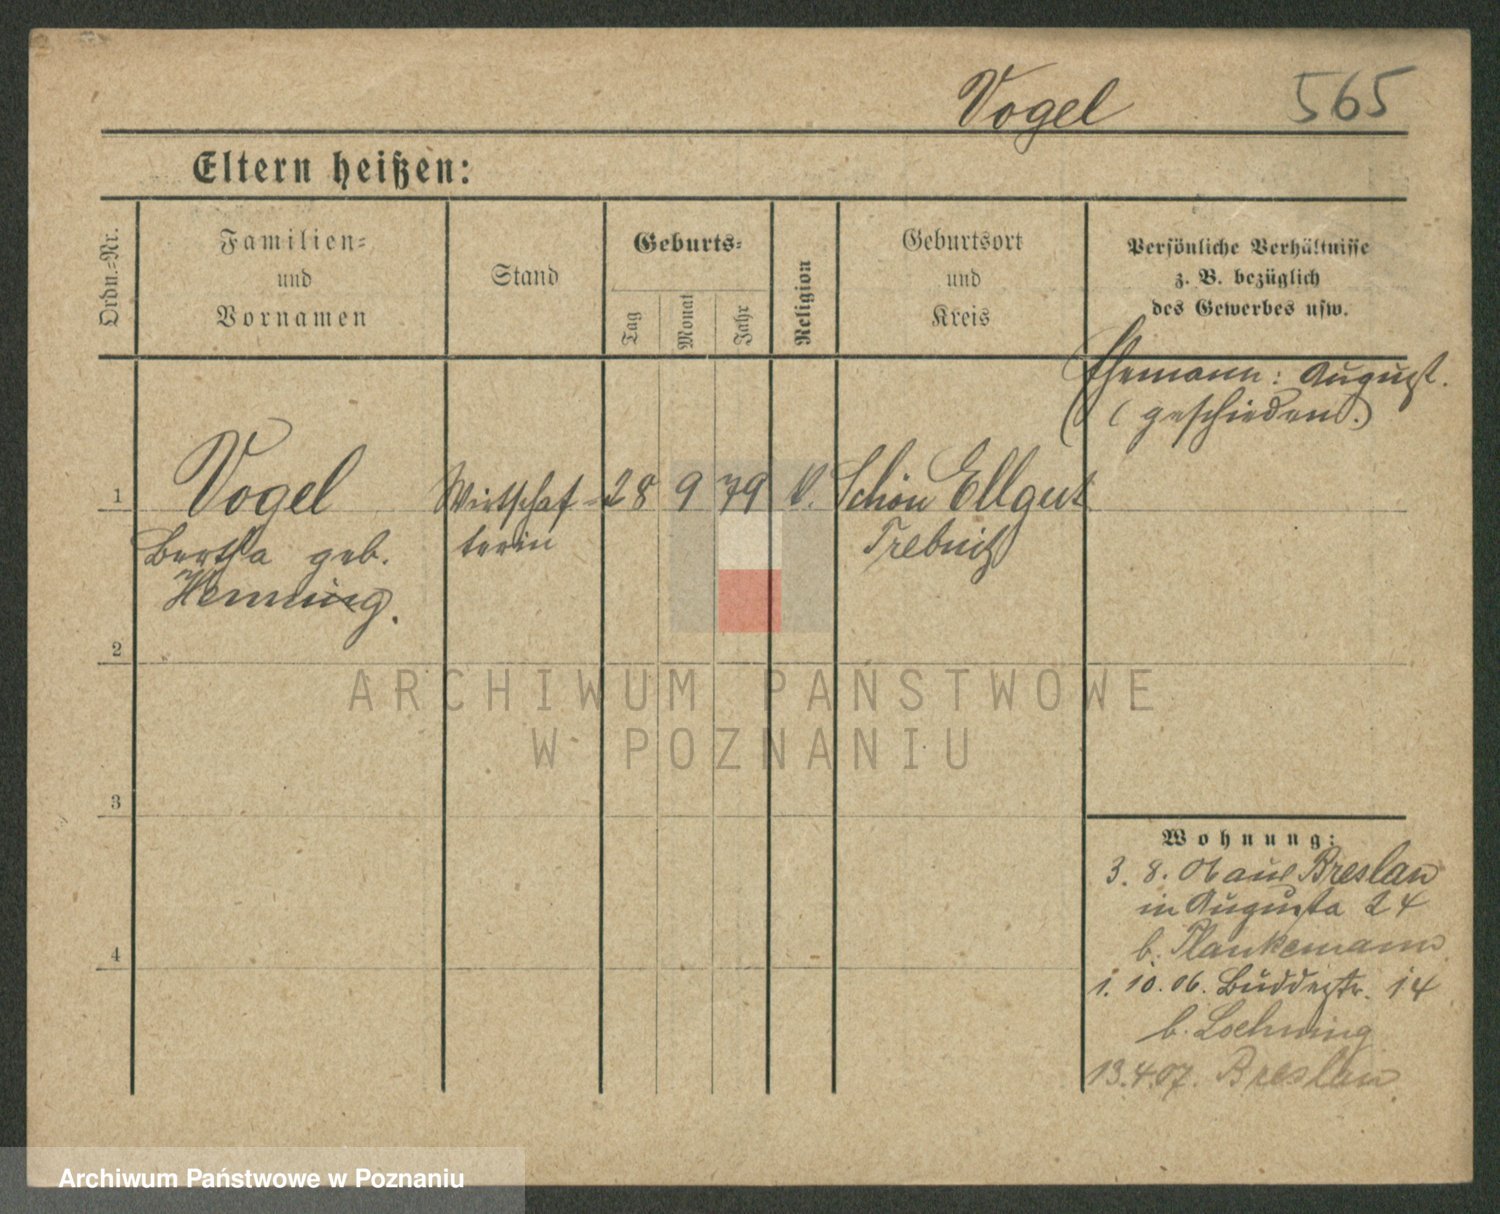 Vogel 565
Eltern heißen:
Ordn.-Nr.
Familien-
und
Vornamen
Stand
Geburts-
Tag
Monat
Jahr
Religion
Geburtsort
und
Kreis
Persönliche Verhältnisse
z. B. bezüglich
des Gewerbes usw.
Ehemann: August.
(geschieden.)
1 Vogel Wirtschaf- 28 9 79 Schön Ellgut
Bertha geb. terin Trebnitz
Henning.
2
ARCHIWUM PAŃSTWOWE
W POZNANIU
3
Wohnung:
3. 8. 06 aus Breslau
in Augusta 24
b. Plankemann
4
1. 10. 06. Buddestr. 14
b. Loehning
13.4.07. Breslau
Archiwum Państwowe w Poznaniu